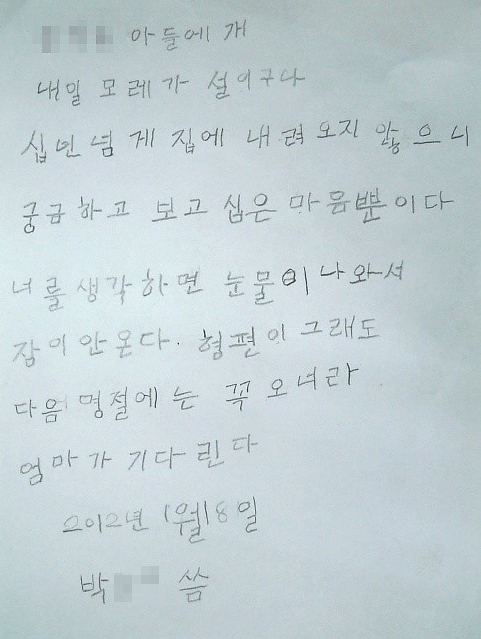 아들에개
내일 모레가 설이구나
십민넘게 집에 내려오지 않으니
궁금하고 보고 십은 마음뿐이다
너를 생각하면 눈물이 나와서
잠이 안온다. 형편이 그래도
다음 명절에는 꼭 오너라
엄마가 기다린다
2012년 1월 18일
박 씀